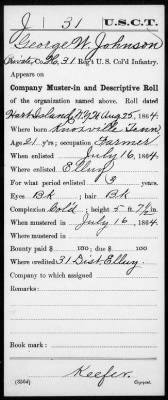 J 31 U.S.C.T.
George W. Johnson
Co. 31 Reg't U.S. Col'd Infantry.
Appears on
Company Muster-in and Descriptive Roll
of the organization named above. Roll dated
Hart Island N.Y.H Aug 25, 1864.
Where born Knoxville Tenn
Age 21 y'rs; occupation Farmer
When enlisted July 16, 1864.
Where enlisted
For what period enlisted 3 years.
Eyes Bk; hair Bk
Complexion Col'd; height 5 ft. 7½ in.
When mustered in July 16, 1864.
Where mustered in
Bounty paid $ 100; due $ 100
Where credited 31 Dist
Company to which assigned
Remarks:
Keefer.